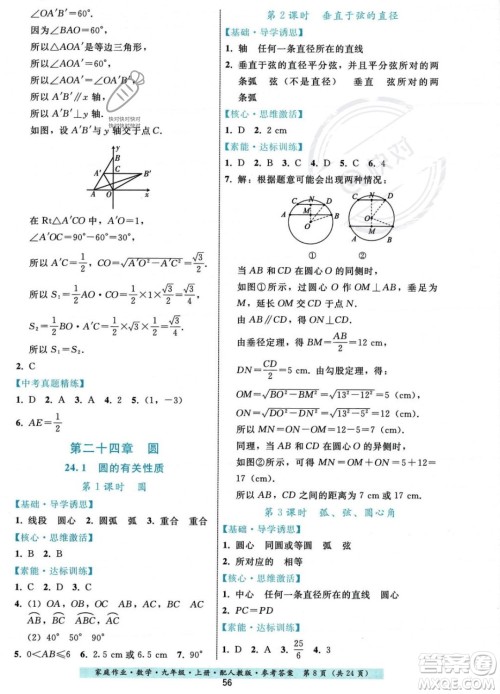 ∠OA′B′=60°.
所以∠AOA′=60°.
所以△AOA′是等边三角形.
所以∠A′OB′=60°.
所以A′B′∥x轴.
如图,设A′B′与y轴交于点C.
y
B
A′
C
B′
A
O
x
在Rt△A′CO中,
∠A′OC=90°-60°=30°.
所以A′C=1/2.
所以CO=√(A′O²-A′C²)=√3/2.
所以S₁=1/2AO·CO=1/2×1×√3/2=√3/4.
所以S₂=1/2BO·A′C=1/2×√3×1/2=√3/4.
所以S₁=S₂.
2. C
【中考真题精练】
1. D 2. A 3. A 4. 2 5. (1,-3)
6. AE=1/2
第二十四章 圆
24.1 圆的有关性质
第1课时 圆
【基础·导学诱思】
1. 线段 圆心 2. 圆弧 弧 3. 重合 重合
【核心·思维激活】
1. B 2. B
【素能·达标训练】
1. C 2. D 3. A 4. D
5. (1) OA,OB,OC (2) AB,BC,AC
6. 0<AB≤6 6. 2.5 cm或6.5 cm 7. 90°
8. 50° 9. 略
第2课时 垂直于弦的直径
【基础·导学诱思】
1. 轴 任何一条直径所在的直线
2. 垂直于弦的直径平分弦,并且平分弦所对的两条弧 弦(不是直径) 垂直 弦 弦所对的两条弧
【核心·思维激活】
1. D 2. 2 cm
【素能·达标训练】
1. D 2. B 3. A 4. C 5. C 6. 4
7. 解:根据题意可能会出现两种情况:
①
②
当AB和CD在圆心O的同侧时,
如图①,过圆心O作OM⊥AB,垂足为M,交CD于点N.
由垂径定理,得BM=AB/2=12(cm),
DN=CD/2=5(cm).
OM=√(BO²-BM²)=√(13²-12²)=5(cm),
ON=√(DO²-DN²)=√(13²-5²)=12(cm).
所以MN=ON-OM=7(cm).
同理,当AB和CD在圆心O的异侧时,如图②,
MN=ON+OM=17(cm).
所以AB与CD的距离为7 cm或17 cm.
第3课时 弧、弦、圆心角
【基础·导学诱思】
1. 圆心 同圆或等圆 弧 弦
2. 任何一条直径 优弧
【核心·思维激活】
1. C 2. PC=PD
【素能·达标训练】
1. A 2. D 3. A 4. D 5. 25/6 6. 3
家庭作业·数学·九年级·上册·配人教版·参考答案 第8页(共24页)
56